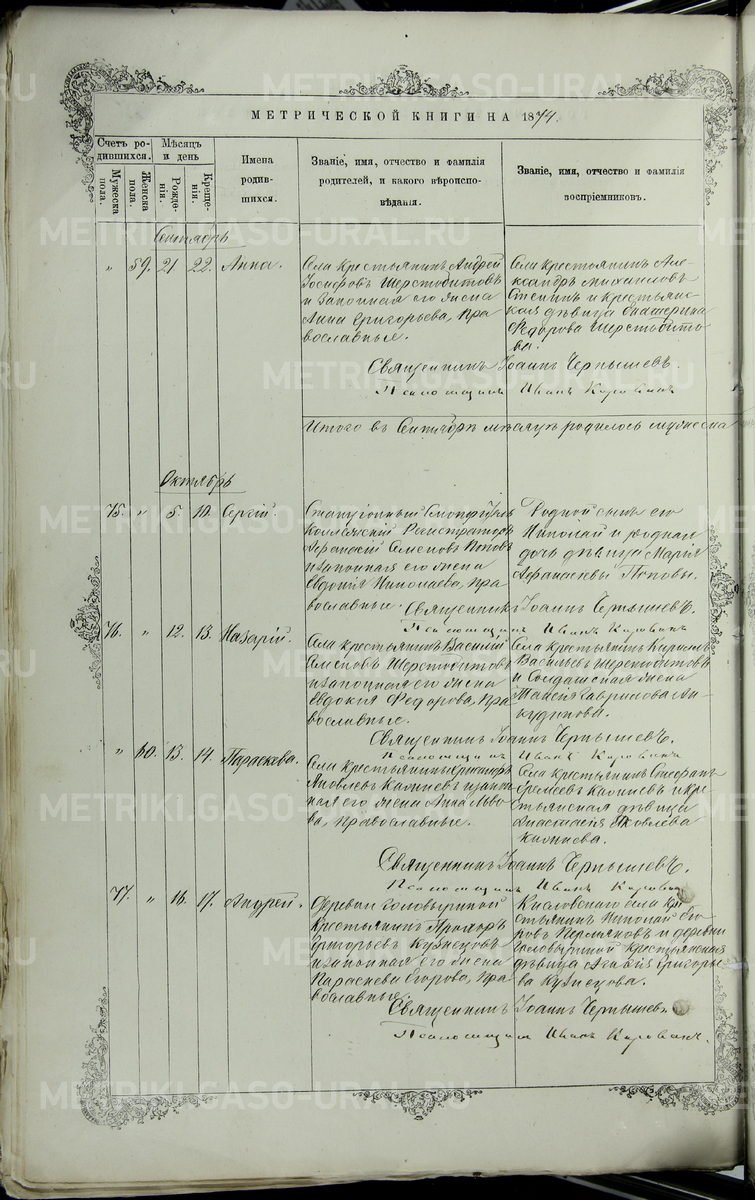 МЕТРИЧЕСКОЙ КНИГИ НА 1874.
Счетъ ро-
дившихся.
Мѣсяцъ
и день
Мужеска
пола.
Женска
пола.
Рожде-
нія.
Креще-
нія.
Имена
родив-
шихся.
Званіе, имя, отчество и фамилія
родителей, и какого вѣроиспо-
вѣданія.
Званіе, имя, отчество и фамилія
воспріемниковъ.
Сентябрь
" 59. 21 22. Анна.
Села крестьянинъ Андрей
Іосифовъ Шерстобитовъ
и законная его жена
Анна Григорьева, пра
вославные.
Села крестьянинъ Але-
ксандръ Михаиловъ
и крестьянс-
кая дѣвица Екатерина
Федорова Шерстобито
ва.
Священникъ Іоаннъ Чернышевъ.
Псаломщикъ Иванъ
Итого въ Сентябрѣ мѣсяцѣ родилось мужеска
Октябрь
75. " 5. 10. Сергій.
Коллежскій Регистраторъ
Афанасій Семеновъ Поповъ
и законная его жена
Евдокія Николаева, пра
вославные.
Родной сынъ его
Николай и родная
дочь дѣвица Марія
Афанасьевы Поповы.
Священникъ Іоаннъ Чернышевъ.
Псаломщикъ Иванъ
76. " 12. 13. Назарій.
Села крестьянинъ Василій
Семеновъ Шерстобитовъ
и законная его жена
Евдокія Федорова, пра
вославные.
Села крестьянинъ
Васильевъ Шерстобитовъ
и Солдатская жена
Гаврилова Ан-
кудинова.
Священникъ Іоаннъ Чернышевъ.
Псаломщикъ Иванъ
" 60. 13. 14. Параскева.
Села крестьянинъ Григорій
Яковлевъ и закон
ная его жена Анна Льво
ва, православные.
Села крестьянинъ Стефанъ
и кре
стьянская дѣвица
Анастасія Яковлева
Священникъ Іоаннъ Чернышевъ.
Псаломщикъ Иванъ
77. " 16. 17. Андрей.
Деревни Головыриной
крестьянинъ Прохоръ
Григорьевъ Кузнецовъ
и законная его жена
Параскева Егорова, пра
вославные.
Кисловскаго села кре
стьянинъ Николай Его
ровъ Пермяковъ и деревни
Головыриной крестьянская
дѣвица Агафія Григорье
ва Кузнецова.
Священникъ Іоаннъ Чернышевъ
Псаломщикъ Иванъ
METRIKI.GASO-URAL.RU